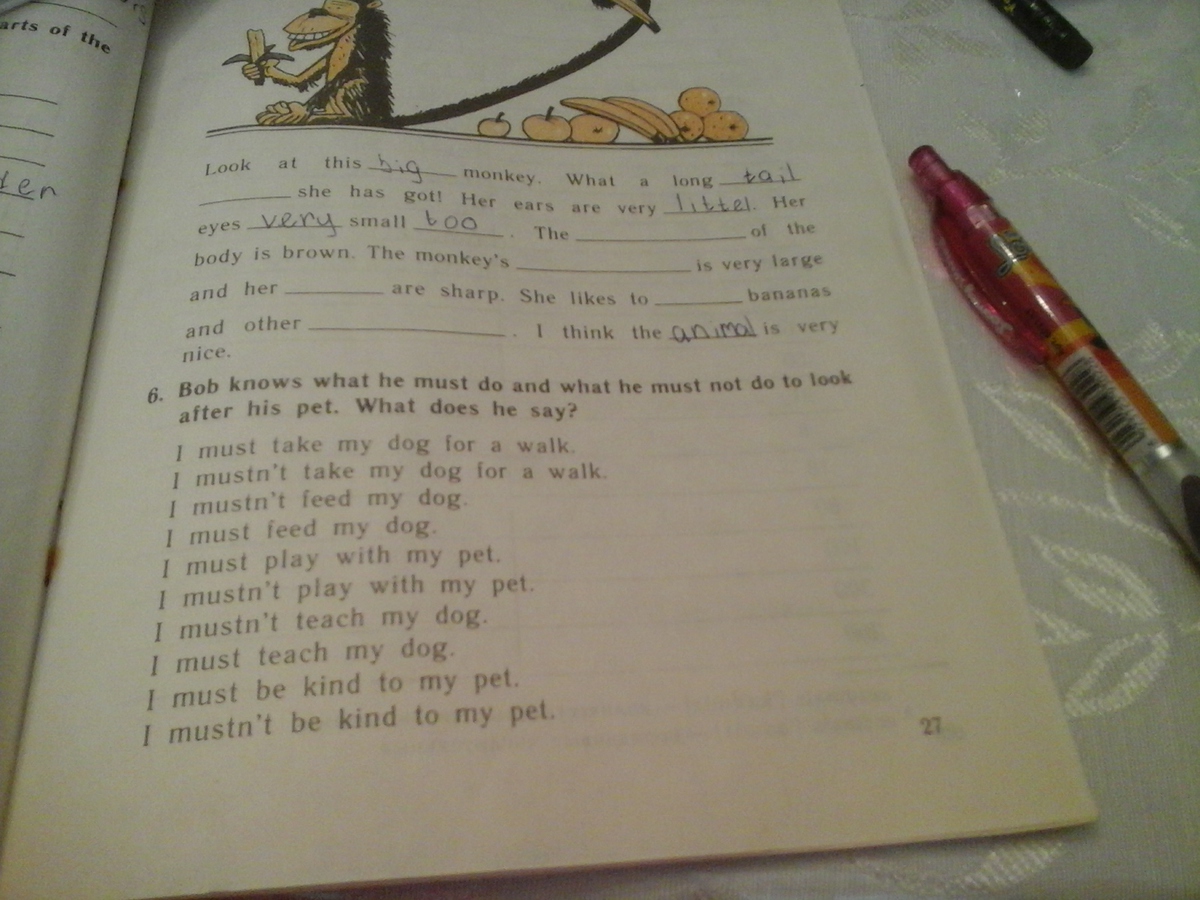 arts of the
Look at this big monkey. What a long tail
she has got! Her ears are very littel. Her
eyes very small too. The of the
body is brown. The monkey's is very large
and her are sharp. She likes to bananas
and other . I think the animal is very
nice.
6. Bob knows what he must do and what he must not do to look
after his pet. What does he say?
I must take my dog for a walk.
I mustn't take my dog for a walk.
I mustn't feed my dog.
I must feed my dog.
I must play with my pet.
I mustn't play with my pet.
I mustn't teach my dog.
I must teach my dog.
I must be kind to my pet.
I mustn't be kind to my pet.
27